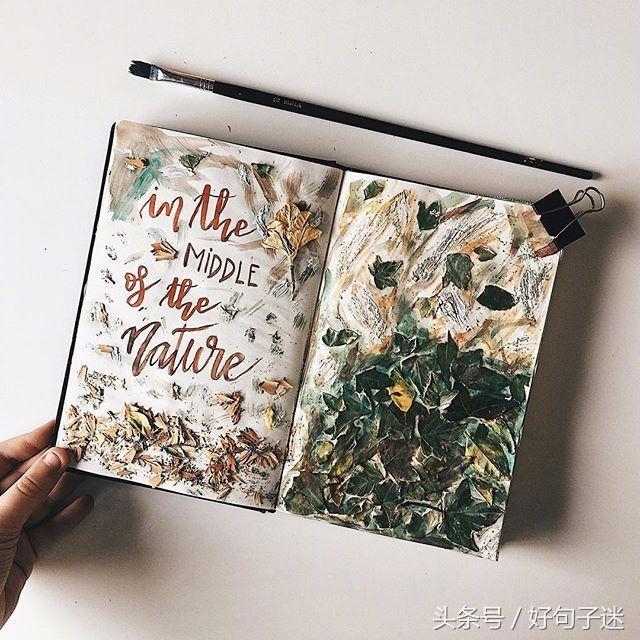 in the
MiDDLE
of the
Nature
头条号 / 好句子迷